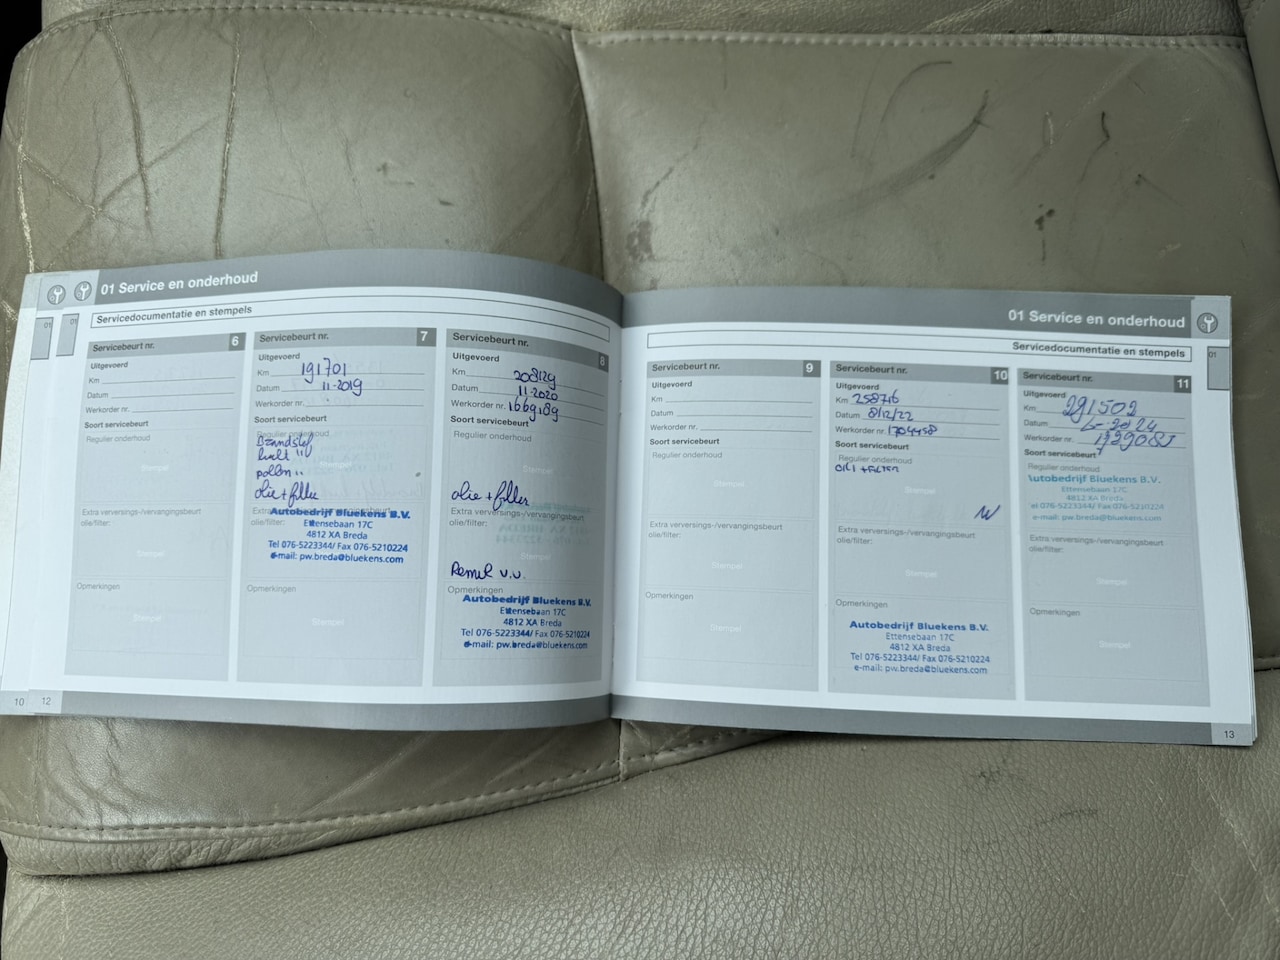 01 Service en onderhoud
Servicedocumentatie en stempels
01
01
Servicebeurt nr. 6
Uitgevoerd
Km
Datum
Werkorder nr.
Soort servicebeurt
Regulier onderhoud
Stempel
Extra verversings-/vervangingsbeurt
olie/filter:
Stempel
Opmerkingen
Stempel
Servicebeurt nr. 7
Uitgevoerd
Km 191701
Datum 11-2019
Werkorder nr.
Soort servicebeurt
Regulier onderhoud
Brandstof
lucht "
pollen "
Stempel
olie + filter
Extra verversings-/vervangingsbeurt
olie/filter:
Autobedrijf Bluekens B.V.
Ettensebaan 17C
4812 XA Breda
Tel 076-5223344/ Fax 076-5210224
e-mail: pw.breda@bluekens.com
Opmerkingen
Stempel
Servicebeurt nr. 8
Uitgevoerd
Km 208129
Datum 11.2020
Werkorder nr. 1669189
Soort servicebeurt
Regulier onderhoud
Stempel
olie + filter
Extra verversings-/vervangingsbeurt
olie/filter:
Stempel
Remvl v.v.
Opmerkingen
Autobedrijf Bluekens B.V.
Ettensebaan 17C
4812 XA Breda
Tel 076-5223344/ Fax 076-5210224
e-mail: pw.breda@bluekens.com
10
12
01 Service en onderhoud
Servicedocumentatie en stempels
01
Servicebeurt nr. 9
Uitgevoerd
Km
Datum
Werkorder nr.
Soort servicebeurt
Regulier onderhoud
Stempel
Extra verversings-/vervangingsbeurt
olie/filter:
Stempel
Opmerkingen
Stempel
Servicebeurt nr. 10
Uitgevoerd
Km 258716
Datum 8/12/22
Werkorder nr. 1704458
Soort servicebeurt
Regulier onderhoud
Stempel
Extra verversings-/vervangingsbeurt
olie/filter:
Stempel
Opmerkingen
Autobedrijf Bluekens B.V.
Ettensebaan 17C
4812 XA Breda
Tel 076-5223344/ Fax 076-5210224
e-mail: pw.breda@bluekens.com
Servicebeurt nr. 11
Uitgevoerd
Km 291502
Datum 6-2024
Werkorder nr.
Soort servicebeurt
Regulier onderhoud
Autobedrijf Bluekens B.V.
Ettensebaan 17C
4812 XA Breda
Tel 076-5223344/ Fax 076-5210224
e-mail: pw.breda@bluekens.com
Extra verversings-/vervangingsbeurt
olie/filter:
Stempel
Opmerkingen
Stempel
13